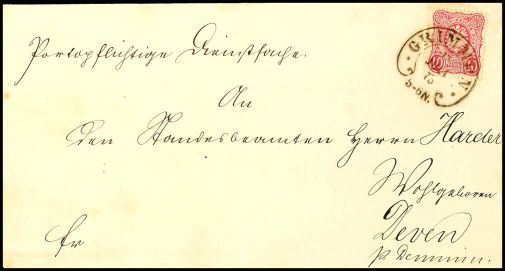 Portopflichtige Dienstsache.
GRIMMEN
75
5-6N.
10
An
den Standesbeamten Herrn Harder
Wohlgeboren
Deven
p Demmin.
fr